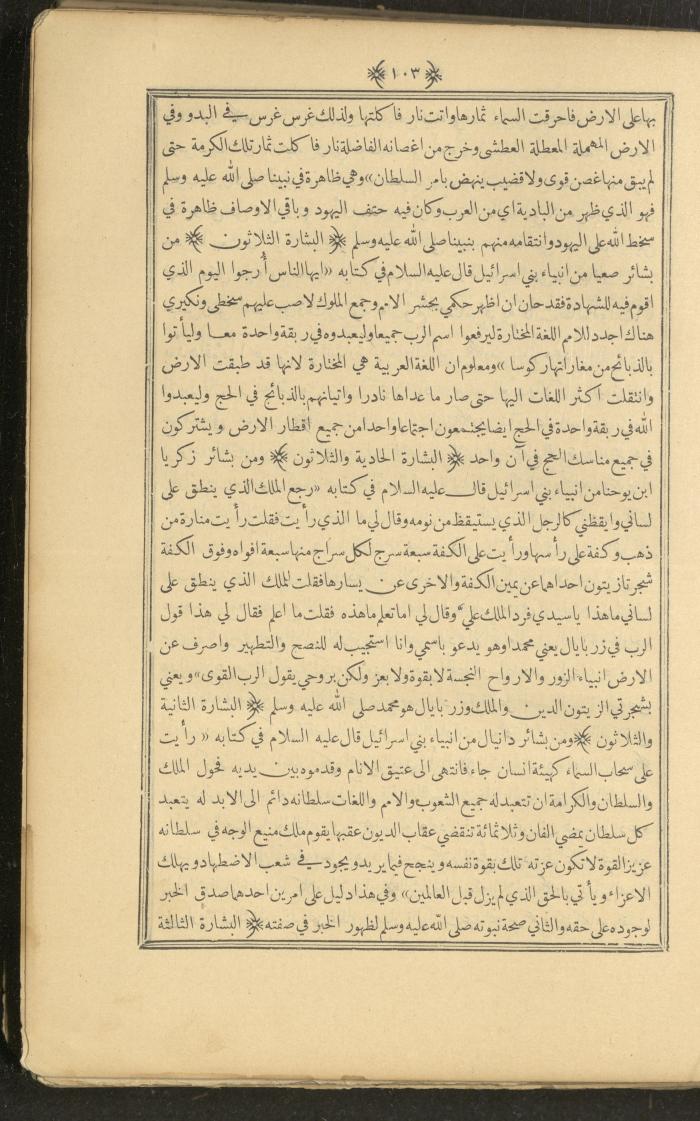 ﴿ ١٠٣ ﴾
بها على الارض فاحرقت السماء ثمارها واتت نار فاكلتها ولذلك غرس غرس في البدو وفي
الارض المهملة المعطلة العطشى وخرج من اغصانه الفاضلة نار فاكلت ثمار تلك الكرمة حتى
لم يبق منها غصن قوى ولا قضيب ينهض بامر السلطان» وهي ظاهرة في نبينا صلى الله عليه وسلم
فهو الذي ظهر من البادية اي من العرب وكان فيه حتف اليهود وباقي الاوصاف ظاهرة في
سخط الله على اليهود وانتقامه منهم بنبينا صلى الله عليه وسلم ﴿ البشارة الثلاثون ﴾ من
بشائر صعيا من انبياء بني اسرائيل قال عليه السلام في كتابه «ايها الناس أرجوا اليوم الذي
اقوم فيه للشهادة فقد حان ان اظهر حكمي بحشر الامم وجمع الملوك لاصب عليهم سخطى ونكيري
هناك اجدد للامم اللغة المختارة ليرفعوا اسم الرب جميعا وليعبدوه في ربقة واحدة معا وليأتوا
بالذبائح من مغار انهار كوسا» ومعلوم ان اللغة العربية هي المختارة لانها قد طبقت الارض
وانتقلت اكثر اللغات اليها حتى صار ما عداها نادرا واتيانهم بالذبائح في الحج وليعبدوا
الله في ربقة واحدة في الحج ايضا يجتمعون اجتماعا واحدا من جميع اقطار الارض ويشتركون
في جميع مناسك الحج في آن واحد ﴿ البشارة الحادية والثلاثون ﴾ ومن بشائر زكريا
ابن يوحنا من انبياء بني اسرائيل قال عليه السلام في كتابه «رجع الملك الذي ينطق على
لساني وايقظني كالرجل الذي يستيقظ من نومه وقال لي ما الذي رأيت فقلت رأيت منارة من
ذهب وكفة على رأسها ورأيت على الكفة سبعة سرج لكل سراج منها سبعة افواه وفوق الكفة
شجرتا زيتون احداهما عن يمين الكفة والاخرى عن يسارها فقلت للملك الذي ينطق على
لساني ما هذا يا سيدي فرد الملك عليّ وقال لي اما تعلم ما هذه فقلت ما اعلم فقال لي هذا قول
الرب في زربابال يعني محمدا وهو يدعو باسمي وانا استجيب له للنصح والتطهير واصرف عن
الارض انبياء الزور والارواح النجسة لا بقوة ولا بعز ولكن بروحي يقول الرب القوى» ويعني
بشجرتي الزيتون الدين والملك وزربابال هو محمد صلى الله عليه وسلم ﴿ البشارة الثانية
والثلاثون ﴾ ومن بشائر دانيال من انبياء بني اسرائيل قال عليه السلام في كتابه «رأيت
على سحاب السماء كهيئة انسان جاء فانتهى الى عتيق الانام وقدموه بين يديه فخول الملك
والسلطان والكرامة ان تتعبد له جميع الشعوب والامم واللغات سلطانه دائم الى الابد له يتعبد
كل سلطان يمضي الفان وثلاثمائة تنقضي عقاب الديون عقبها يقوم ملك منيع الوجه في سلطانه
عزيز القوة لا تكون عزته تلك بقوة نفسه وينجح فيما يريد ويجود في شعب الاضطهاد ويهلك
الاعزاء ويأتي بالحق الذي لم يزل قبل العالمين» وفي هذا دليل على امرين احدهما صدق الخبر
لوجوده على حقه والثاني صحة نبوته صلى الله عليه وسلم لظهور الخبر في صفته ﴿ البشارة الثالثة